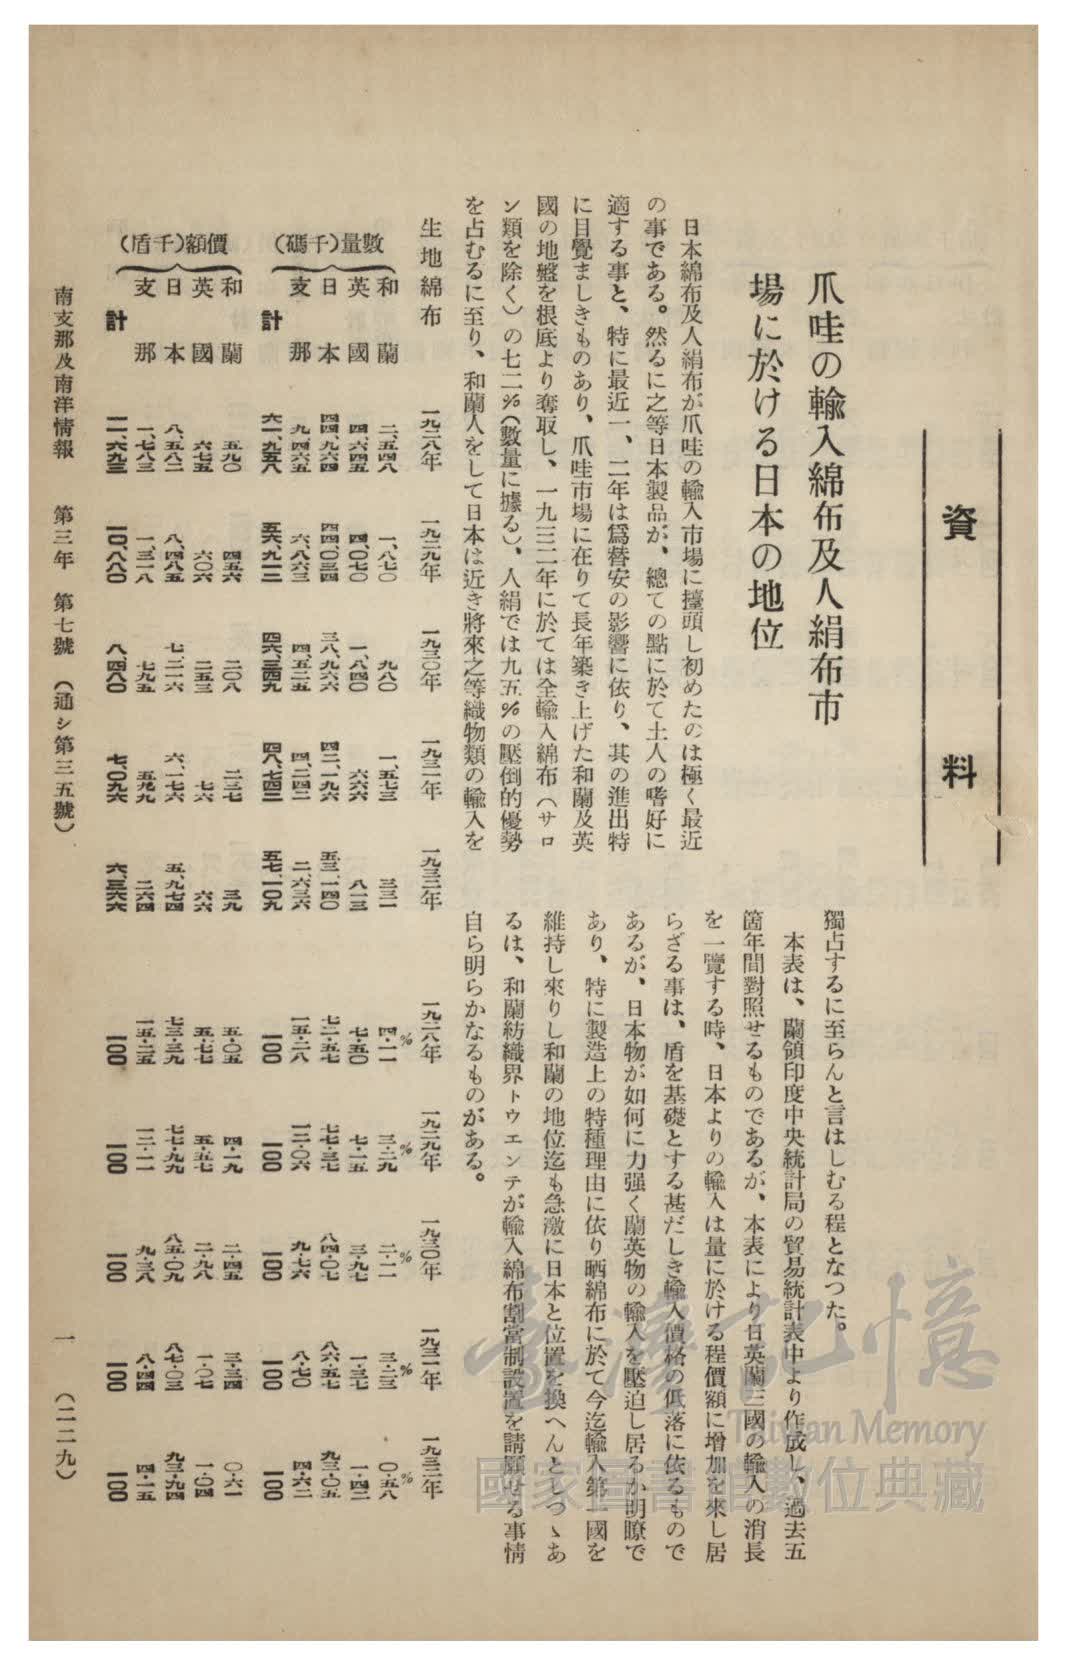 資料
爪哇の輸入綿布及人絹布市
場に於ける日本の地位
日本綿布及人絹布が爪哇の輸入市場に擡頭し初めたのは極く最近
の事である。然るに之等日本製品が、總ての點に於て土人の嗜好に
適する事と、特に最近一、二年は爲替安の影響に依り、其の進出特
に目覺ましきものあり、爪哇市場に在りて長年築き上げた和蘭及英
國の地盤を根底より奪取し、一九三二年に於ては全輸入綿布（サロ
ン類を除く）の七二％（數量に據る）、人絹では九五％の壓倒的優勢
を占むるに至り、和蘭人をして日本は近き將來之等織物類の輸入を
獨占するに至らんと言はしむる程となつた。
本表は、蘭領印度中央統計局の貿易統計表中より作成し、過去五
箇年間對照せるものであるが、本表により日英蘭三國の輸入の消長
を一覽する時、日本よりの輸入は量に於ける程價額に增加を來し居
らざる事は、盾を基礎とする甚だしき輸入價格の低落に依るもので
あるが、日本物が如何に力强く蘭英物の輸入を壓迫し居るか明瞭で
あり、特に製造上の特種理由に依り晒綿布に於て今迄輸入第一國を
維持し來りし和蘭の地位迄も急激に日本と位置を換へんとしつゝあ
るは、和蘭紡織界トウエンテが輸入綿布割當制設置を請願せる事情
自ら明らかなるものがある。
生地綿布 一九二八年 一九二九年 一九三〇年 一九三一年 一九三二年 一九二八年 一九二九年 一九三〇年 一九三一年 一九三二年
％ ％ ％ ％ ％
數量（千碼）
和蘭 二、五四八 一、八七〇 九八〇 一、五七三 三三一 四・一一 三・二九 二・一一 三・二三 〇・五八
英國 四、六四五 四、〇七〇 一、八四〇 六六六 八一三 七・五〇 七・一五 三・九七 一・三七 一・四二
日本 四四、九六四 四四、〇三四 三八、九六六 四二、一九六 五三、一四〇 七二・五七 七七・三七 八四・〇七 八六・五七 九三・〇五
支那 九、四六五 六、八六三 四、五二五 四、二四二 二、六三六 一五・二八 一二・〇六 九・七六 八・七〇 四・六二
計 六一、九五八 五六、九一二 四六、三四九 四八、七四二 五七、一〇九 一〇〇 一〇〇 一〇〇 一〇〇 一〇〇
價額（千盾）
和蘭 五九〇 四五六 二〇八 二三七 三九 五・〇五 四・一九 二・四五 三・三四 〇・六一
英國 六七五 六〇六 二五三 七六 六六 五・七七 五・五七 二・九八 一・〇七 一・〇四
日本 八、五八二 八、四八五 七、二一六 六、一七六 五、九七四 七三・三九 七七・九九 八五・〇九 八七・〇三 九三・九四
支那 一、七八三 一、三一八 七九五 五九九 二六四 一五・二五 一二・一一 九・三八 八・四四 四・一五
計 一一、六九三 一〇、八八〇 八、四八〇 七、〇九六 六、三六六 一〇〇 一〇〇 一〇〇 一〇〇 一〇〇
南支那及南洋情報 第三年 第七號 （通シ第三五號） 一 （二二九）
臺灣記憶
Taiwan Memory
國家圖書館數位典藏